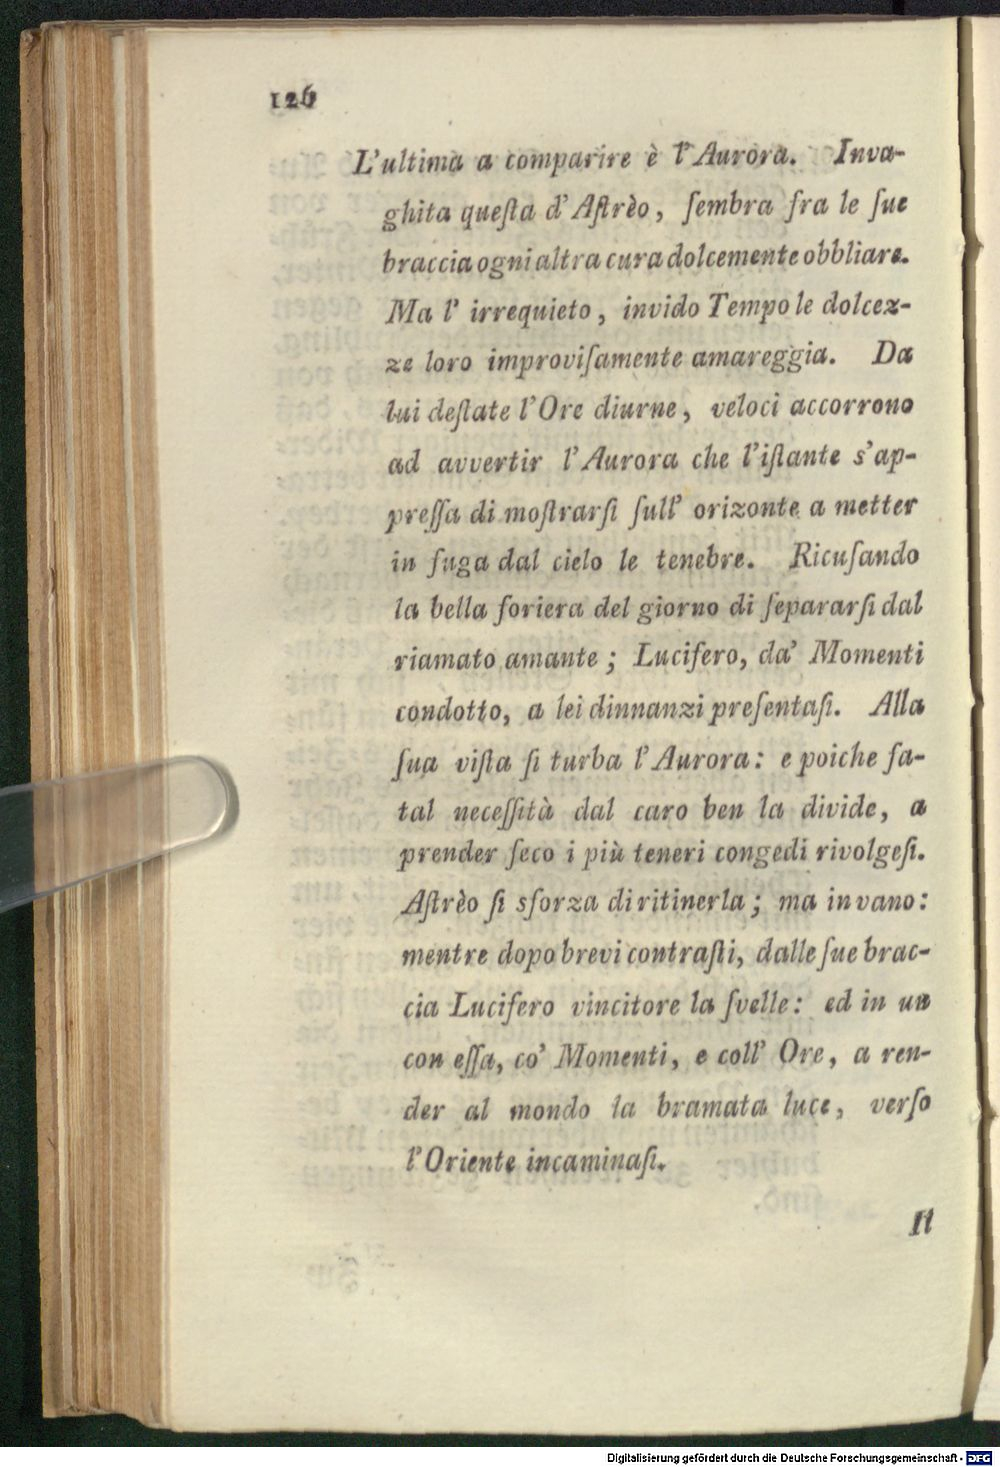 126
L'ultima a comparire è l'Aurora. Inva-
ghita queſta d'Aſtrèo, ſembra fra le ſue
braccia ogni altra cura dolcemente obbliare.
Ma l' irrequieto, invido Tempo le dolcez-
ze loro improviſamente amareggia. Da
lui deſtate l'Ore diurne, veloci accorrono
ad avvertir l'Aurora che l'iſtante s'ap-
preſſa di moſtrarſi ſull' orizonte a metter
in fuga dal cielo le tenebre. Ricuſando
la bella foriera del giorno di ſepararſi dal
riamato amante; Lucifero, da' Momenti
condotto, a lei dinnanzi preſentaſi. Alla
ſua viſta ſi turba l'Aurora: e poiche fa-
tal neceſſità dal caro ben la divide, a
prender ſeco i più teneri congedi rivolgeſi.
Aſtrèo ſi sforza di ritinerla; ma in vano:
mentre dopo brevi contraſti, dalle ſue brac-
cia Lucifero vincitore la ſvelle: ed in un
con eſſa, co' Momenti, e coll' Ore, a ren-
der al mondo la bramata luce, verſo
l'Oriente incaminaſi.
Il
Digitalisierung gefördert durch die Deutsche Forschungsgemeinschaft - DFG